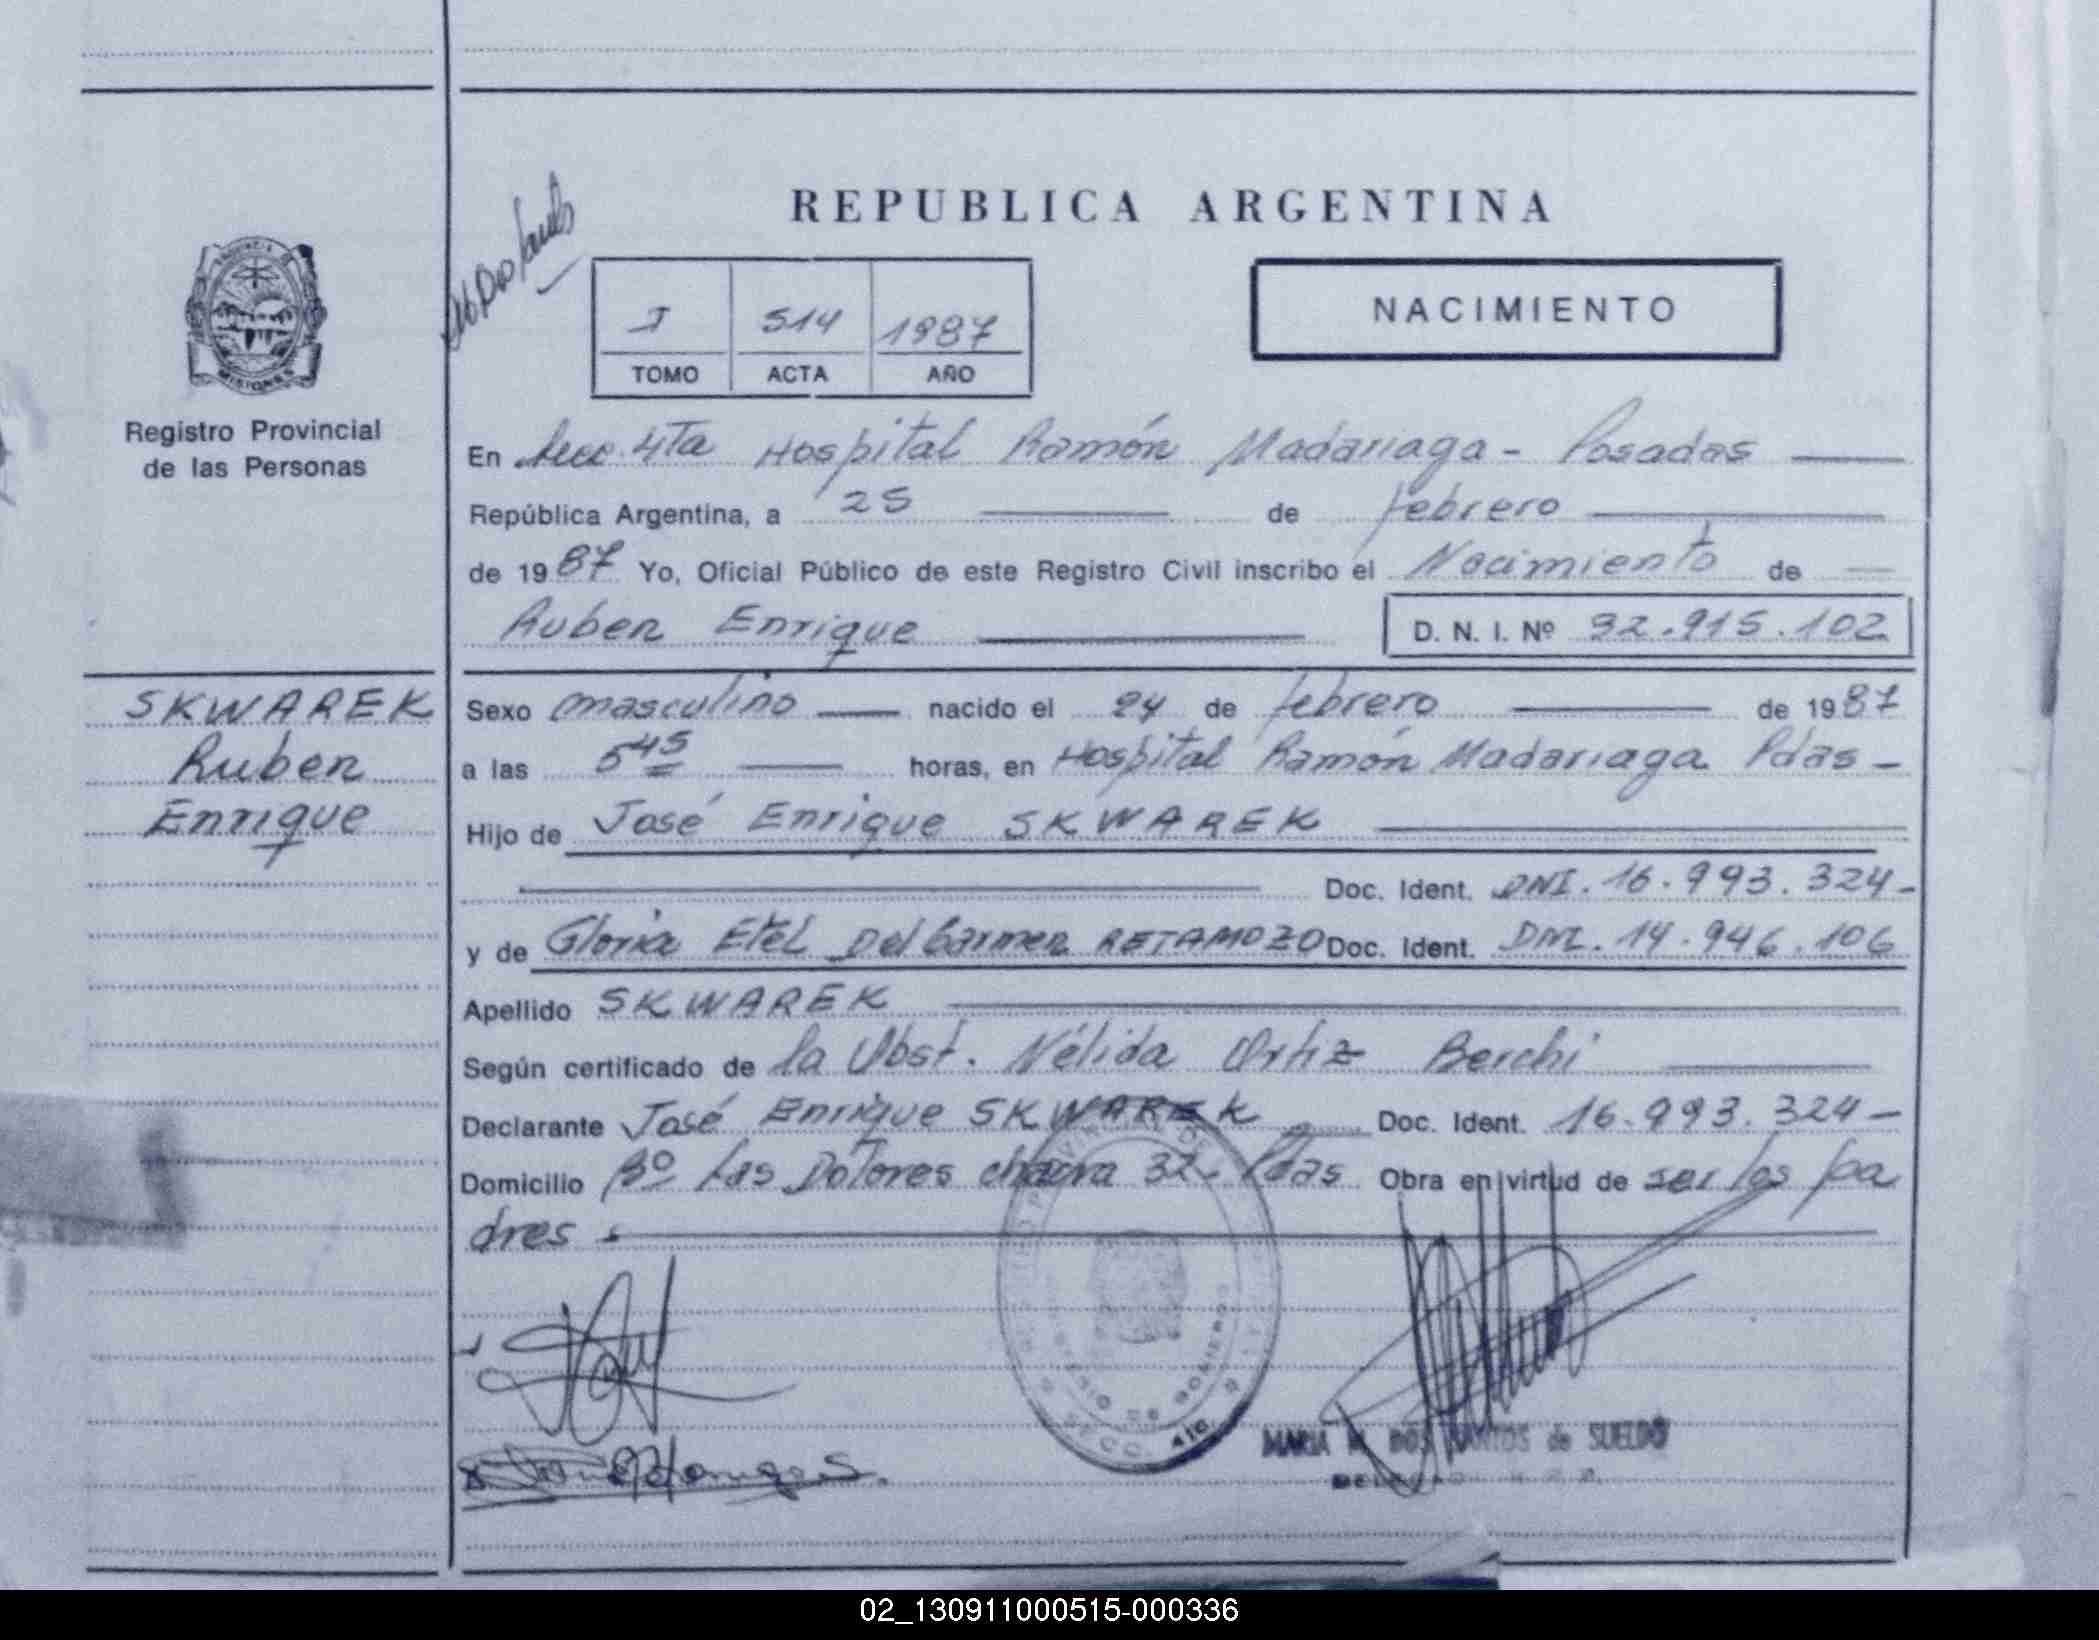 REPUBLICA ARGENTINA
I 514 1987
TOMO ACTA AÑO
NACIMIENTO
MISIONES
Registro Provincial
de las Personas
En Secc. 4Ta Hospital Ramón Madariaga - Posadas
República Argentina, a 25 de febrero
de 1987 Yo, Oficial Público de este Registro Civil inscribo el Nacimiento de
Ruben Enrique D. N. I. Nº 32.915.102
SKWAREK
Ruben
Enrique
Sexo masculino nacido el 24 de febrero de 1987
a las 5 45 horas, en Hospital Ramón Madariaga Pdas -
Hijo de José Enrique SKWAREK
Doc. Ident. DNI. 16.993.324-
y de Gloria Etel Del Carmen RETAMOZO Doc. Ident. DNI. 14.946.106
Apellido SKWAREK
Según certificado de la Obst. Nélida Ortiz Berchi
Declarante José Enrique SKWAREK Doc. Ident. 16.993.324-
Domicilio Bº Las Dolores chacra 32- Pdas Obra en virtud de ser los pa
dres
SECC. 4ta.
MARIA M. DOS SANTOS de SUELDO
02_130911000515-000336